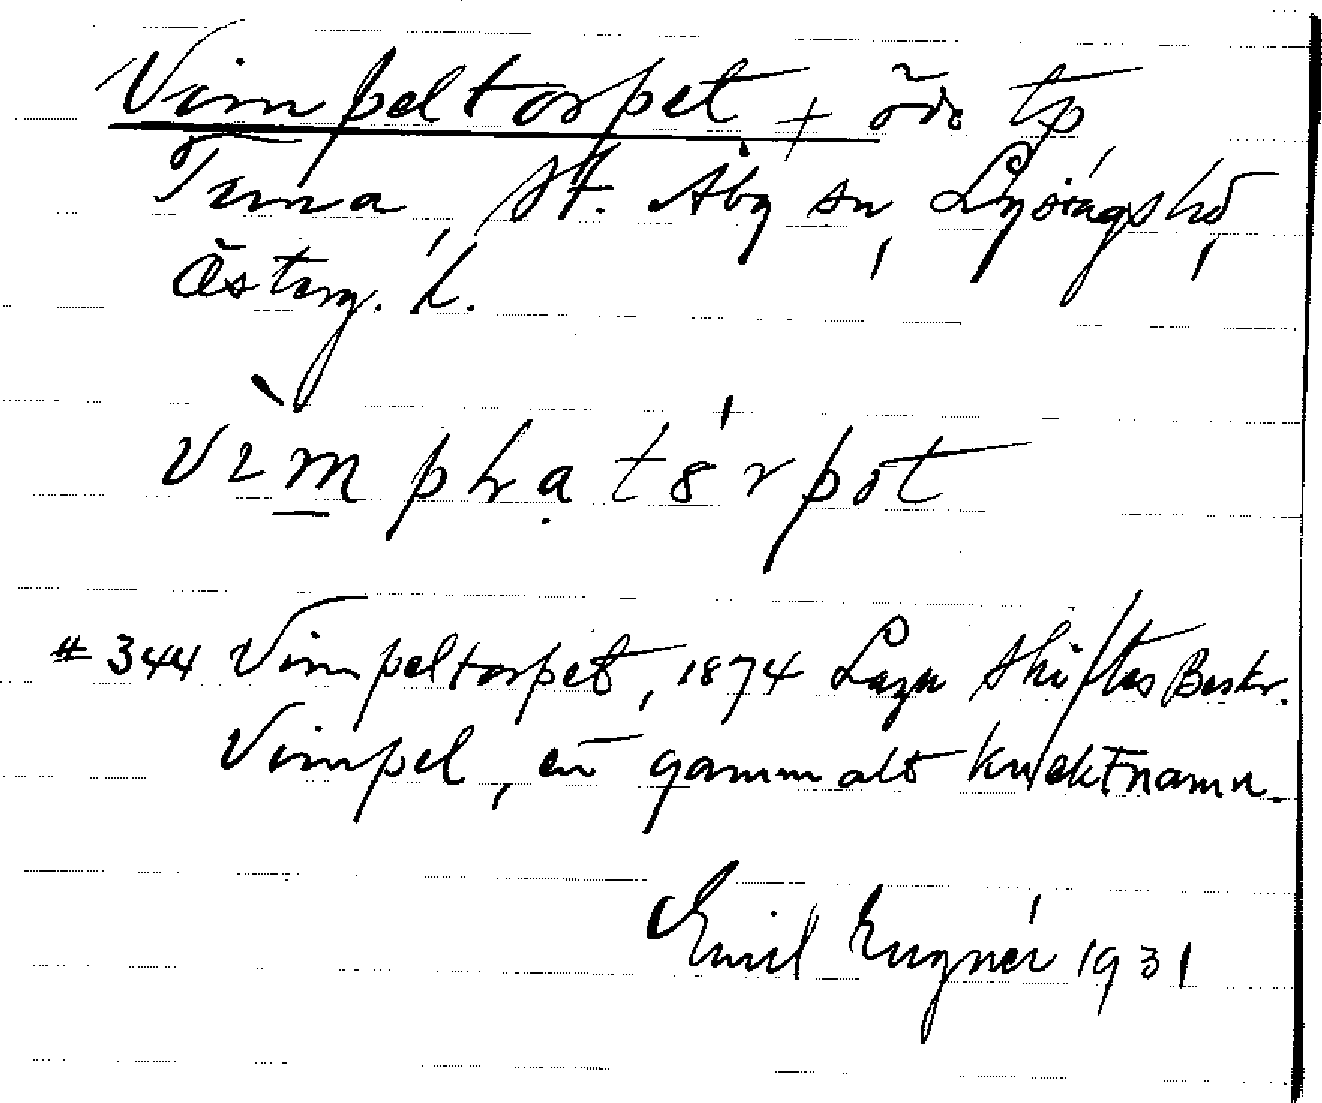 Vimpeltorpet + öde tp
Tuna, St. Åby sn, Lysings hd,
Österg. l.
# 344 Vimpeltorpet, 1874 Laga Skiftes Beskr.
Vimpel, en gammalt knektnamn.
Emil Eugnér 1931